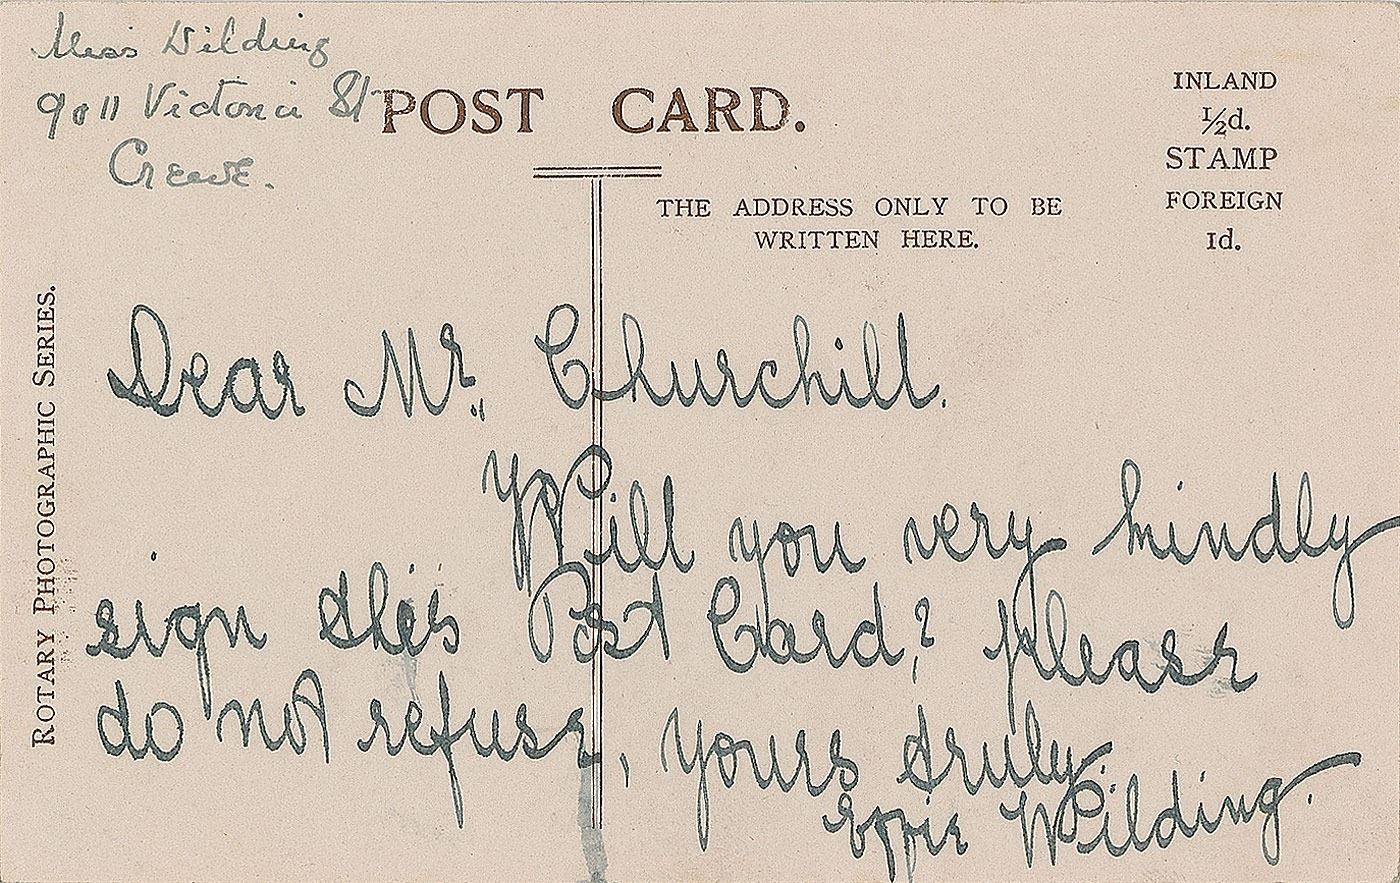 Miss Wilding
9 & 11 Victoria St
Crewe.
POST CARD.
INLAND
½d.
STAMP
FOREIGN
1d.
THE ADDRESS ONLY TO BE
WRITTEN HERE.
ROTARY PHOTOGRAPHIC SERIES.
Dear Mr. Churchill.
Will you very kindly
sign this Post Card? please
do not refuse, yours truly
Effie Wilding.